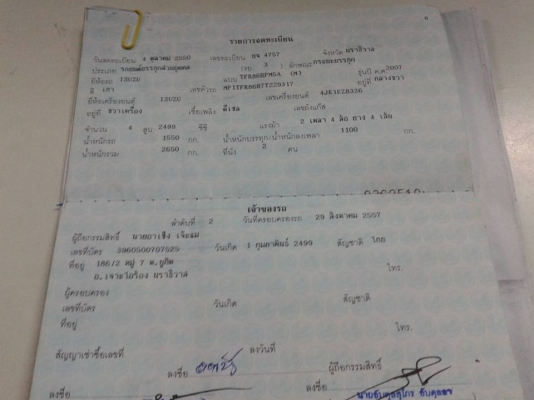 รายการจดทะเบียน
วันจดทะเบียน 4 ตุลาคม 2550 เลขทะเบียน บจ 4767 จังหวัด นราธิวาส
ประเภท รถยนต์บรรทุกส่วนบุคคล (รย. 3 ) ลักษณะ กระบะบรรทุก
ยี่ห้อรถ ISUZU แบบ TFR86HPM5A (M) รุ่นปี ค.ศ. 2007
สี เทา เลขตัวรถ MP1TFR86H7T229317 อยู่ที่ กลางขวา
ยี่ห้อเครื่องยนต์ ISUZU เลขเครื่องยนต์ 4JK1EZ8326
อยู่ที่ ขวาเครื่อง เชื้อเพลิง ดีเซล เลขถังแก๊ส
จำนวน 4 สูบ 2499 ซีซี แรงม้า 2 เพลา 4 ล้อ ยาง 4 เส้น
น้ำหนักรถ 1550 กก. น้ำหนักบรรทุก/น้ำหนักลงเพลา 1100 กก.
น้ำหนักรวม 2650 กก. ที่นั่ง 2 คน
เจ้าของรถ
ลำดับที่ 2 วันที่ครอบครองรถ 29 สิงหาคม 2557
ผู้ถือกรรมสิทธิ์
เลขที่บัตร 3960500707525 วันเกิด 1 กุมภาพันธ์ 2499 สัญชาติ ไทย
ที่อยู่ 186/2 หมู่ 7 ต.จูกิต
อ.เจาะไอร้อง นราธิวาส โทร.
ผู้ครอบครอง
เลขที่บัตร วันเกิด สัญชาติ
ที่อยู่
โทร.
สัญญาเช่าซื้อเลขที่ ลงวันที่
ลงชื่อ ผู้ถือกรรมสิทธิ์
ลงชื่อ ลงชื่อ